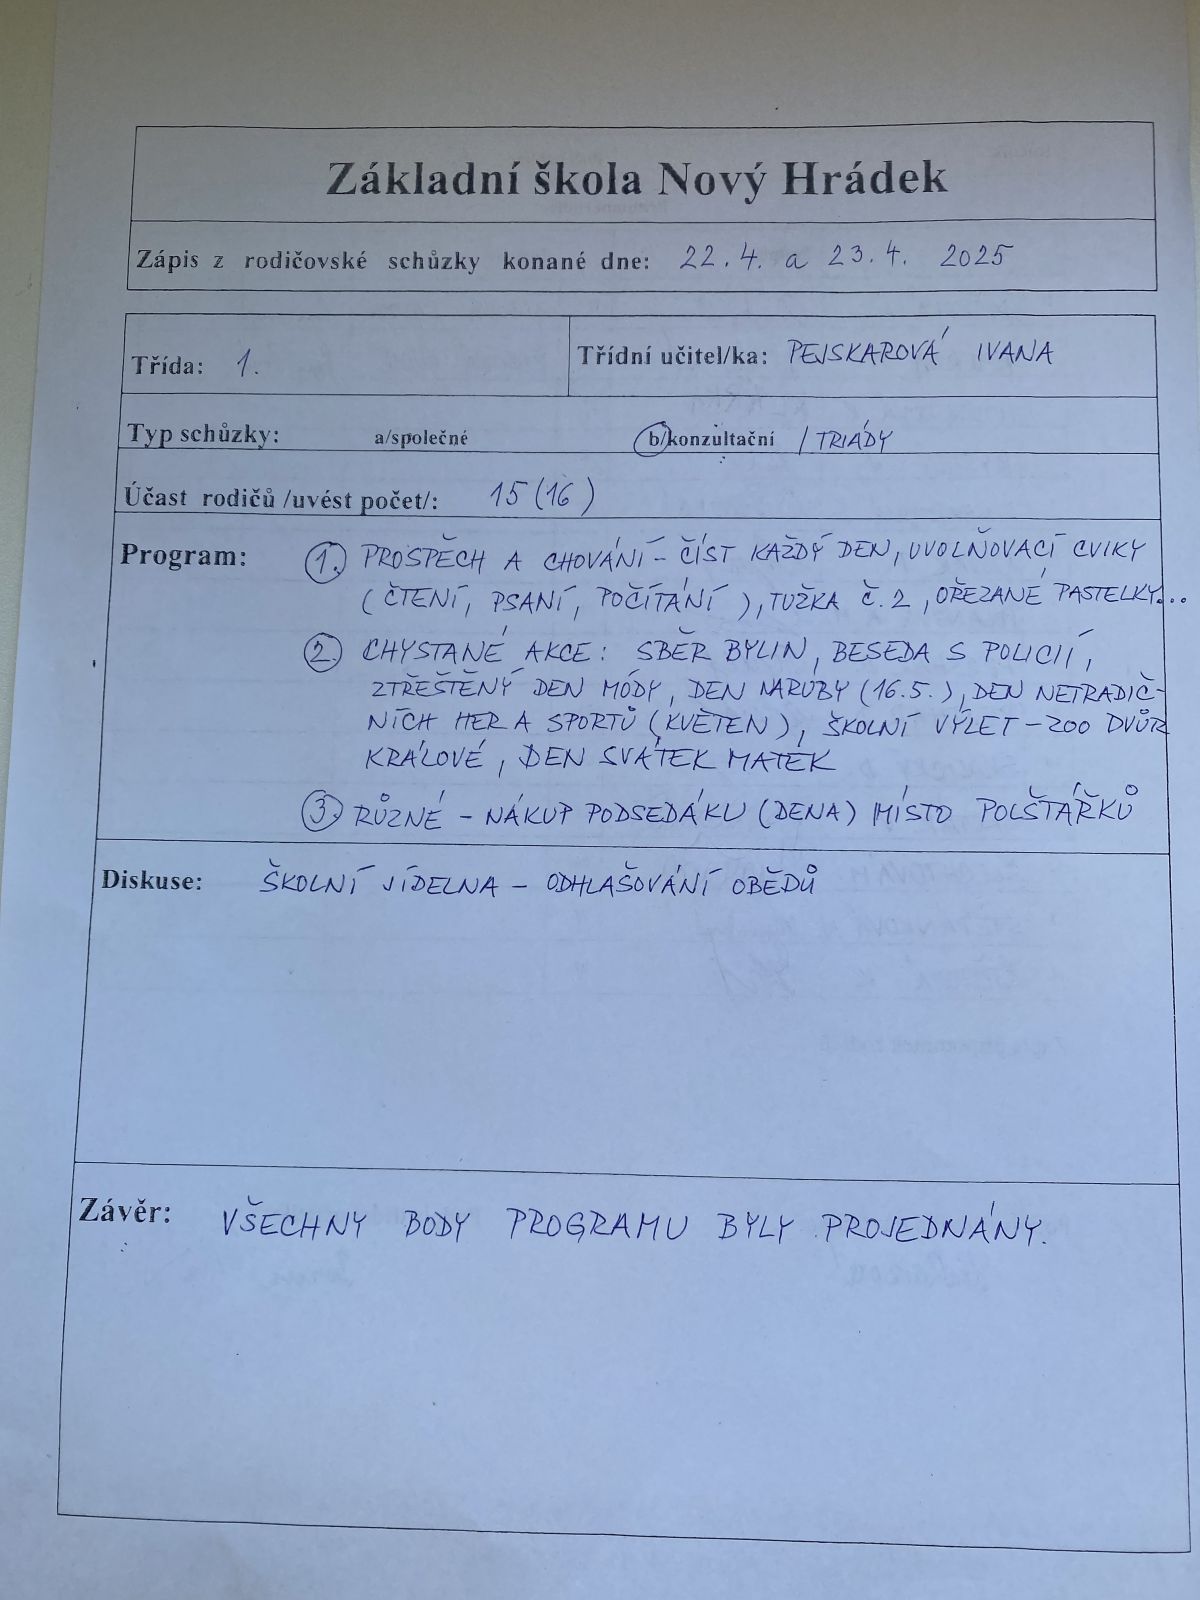 Základní škola Nový Hrádek
Zápis z rodičovské schůzky konané dne: 22.4. a 23.4. 2025
Třída: 1. Třídní učitel/ka: PEJSKAROVÁ IVANA
Typ schůzky: a/společné b/konzultační / TRIÁDY
Účast rodičů /uvést počet/: 15 (16)
Program: 1. PROSPĚCH A CHOVÁNÍ – ČÍST KAŽDÝ DEN, UVOLŇOVACÍ CVIKY
(ČTENÍ, PSANÍ, POČÍTÁNÍ), TUŽKA Č. 2, OŘEZANÉ PASTELKY...
2. CHYSTANÉ AKCE: SBĚR BYLIN, BESEDA S POLICIÍ,
ZTŘEŠTĚNÝ DEN MÓDY, DEN NARUBY (16.5.), DEN NETRADIČ-
NÍCH HER A SPORTŮ (KVĚTEN), ŠKOLNÍ VÝLET – ZOO DVŮR
KRÁLOVÉ, DEN SVÁTEK MATEK
3. RŮZNÉ – NÁKUP PODSEDÁKU (DENA) MÍSTO POLŠTÁŘKŮ
Diskuse: ŠKOLNÍ JÍDELNA – ODHLAŠOVÁNÍ OBĚDŮ
Závěr: VŠECHNY BODY PROGRAMU BYLY PROJEDNÁNY.